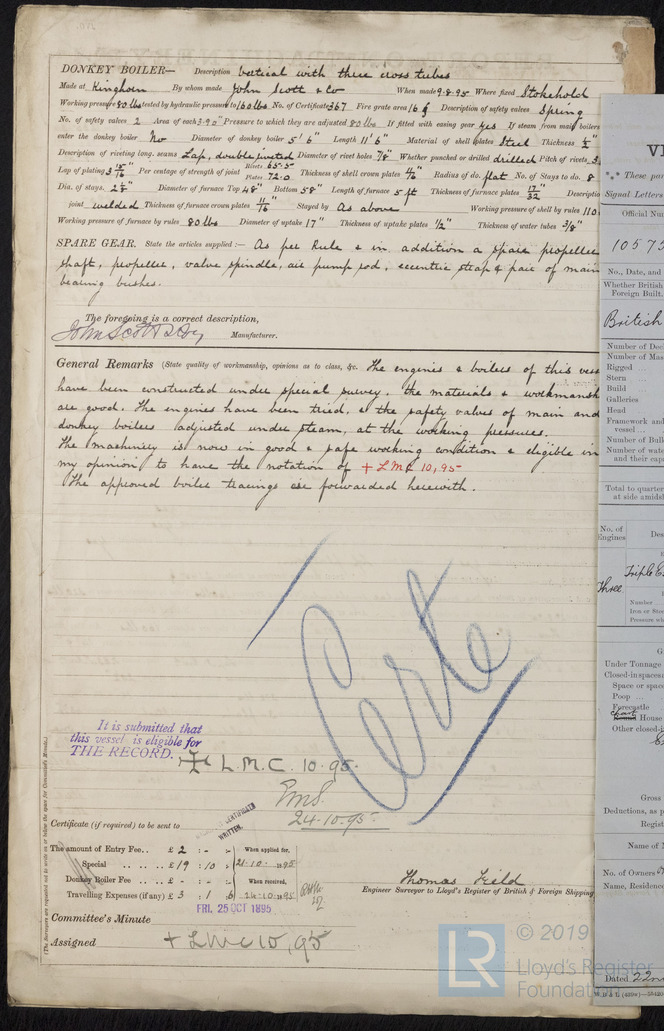 DONKEY BOILER— Description Vertical with three cross tubes
Made at Kinghorn By whom made John Scott & Co When made 9.8.95 Where fixed Stokehold
Working pressure 80 lbs tested by hydraulic pressure to 160 lbs No. of Certificate 367 Fire grate area 16 Description of safety valves Spring
No. of safety valves 2 Area of each 3.90" Pressure to which they are adjusted 80 lbs If fitted with easing gear yes If steam from main boilers
enter the donkey boiler No Diameter of donkey boiler 5' 6" Length 11' 6" Material of shell plates Steel Thickness ½"
Description of riveting long. seams Lap, double riveted Diameter of rivet holes 7/8" Whether punched or drilled drilled Pitch of rivets 3
Lap of plating 3 15/16" Per centage of strength of joint Rivets 65.5 Plates 72.0 Thickness of shell crown plates Radius of do. flat No. of Stays to do. 8
Dia. of stays. Diameter of furnace Top 48" Bottom 58" Length of furnace 5 ft Thickness of furnace plates 17/32" Descriptio
joint welded Thickness of furnace crown plates 11/16" Stayed by As above Working pressure of shell by rules 110
Working pressure of furnace by rules 80 lbs Diameter of uptake 17" Thickness of uptake plates ½" Thickness of water tubes 3/8"
SPARE GEAR. State the articles supplied:— As per Rule & in addition a spare propeller
shaft, propeller, valve spindle, air pump rod, eccentric strap & pair of main
bearing bushes.
The foregoing is a correct description,
John Scott & Coy Manufacturer.
General Remarks (State quality of workmanship, opinions as to class, &c. The engines & boilers of this vess
have been constructed under special survey. the materials & workmansh
are good. The engines have been tried, & the safety valves of main and
donkey boilers adjusted under steam, at the working pressures.
The machinery is now in good & safe working condition & eligible in
my opinion to have the notation of + LMC 10,95
The approved boiler tracings are forwarded herewith.
Certe
It is submitted that
this vessel is eligible for
THE RECORD. + L.M.C. 10.95.
24.10.95
CERTIFICATE
WRITTEN.
Certificate (if required) to be sent to
The amount of Entry Fee.. £ 2 : - : - When applied for,
Special .. .. .. .. £ 19 : 10 : - 21.10.1895
Donkey Boiler Fee .. .. £ - : - : - When received,
Travelling Expenses (if any) £ 3 : 1 : 6 24.10.1895
FRI. 25 OCT 1895
Thomas Field
Engineer Surveyor to Lloyd's Register of British & Foreign Shipping
Committee's Minute
Assigned + LMC 10,95
(The Surveyors are requested not to write on or below the space for Committee's Minute.)
*** These par
Signal Letters
Official Num
10573
No., Date, and
Whether British
Foreign Built.
British
Number of Dec
Number of Mas
Rigged ...
Stern ...
Build ...
Galleries
Head ...
Framework and
vessel ...
Number of Bulk
Number of wate
and their capa
Total to quarter
at side amidsh
No. of
Engines
Des
Three
Triple E
Number
Iron or Stee
Pressure wh
G
Under Tonnage
Closed-in spaces a
Space or spac
Poop ...
Forecastle
Chart House
Other closed-i
Gross
Deductions, as p
Regist
Name of M
No. of Owners
Name, Residence
Dated 22n
LR
© 2019
Lloyd's Register
Foundation